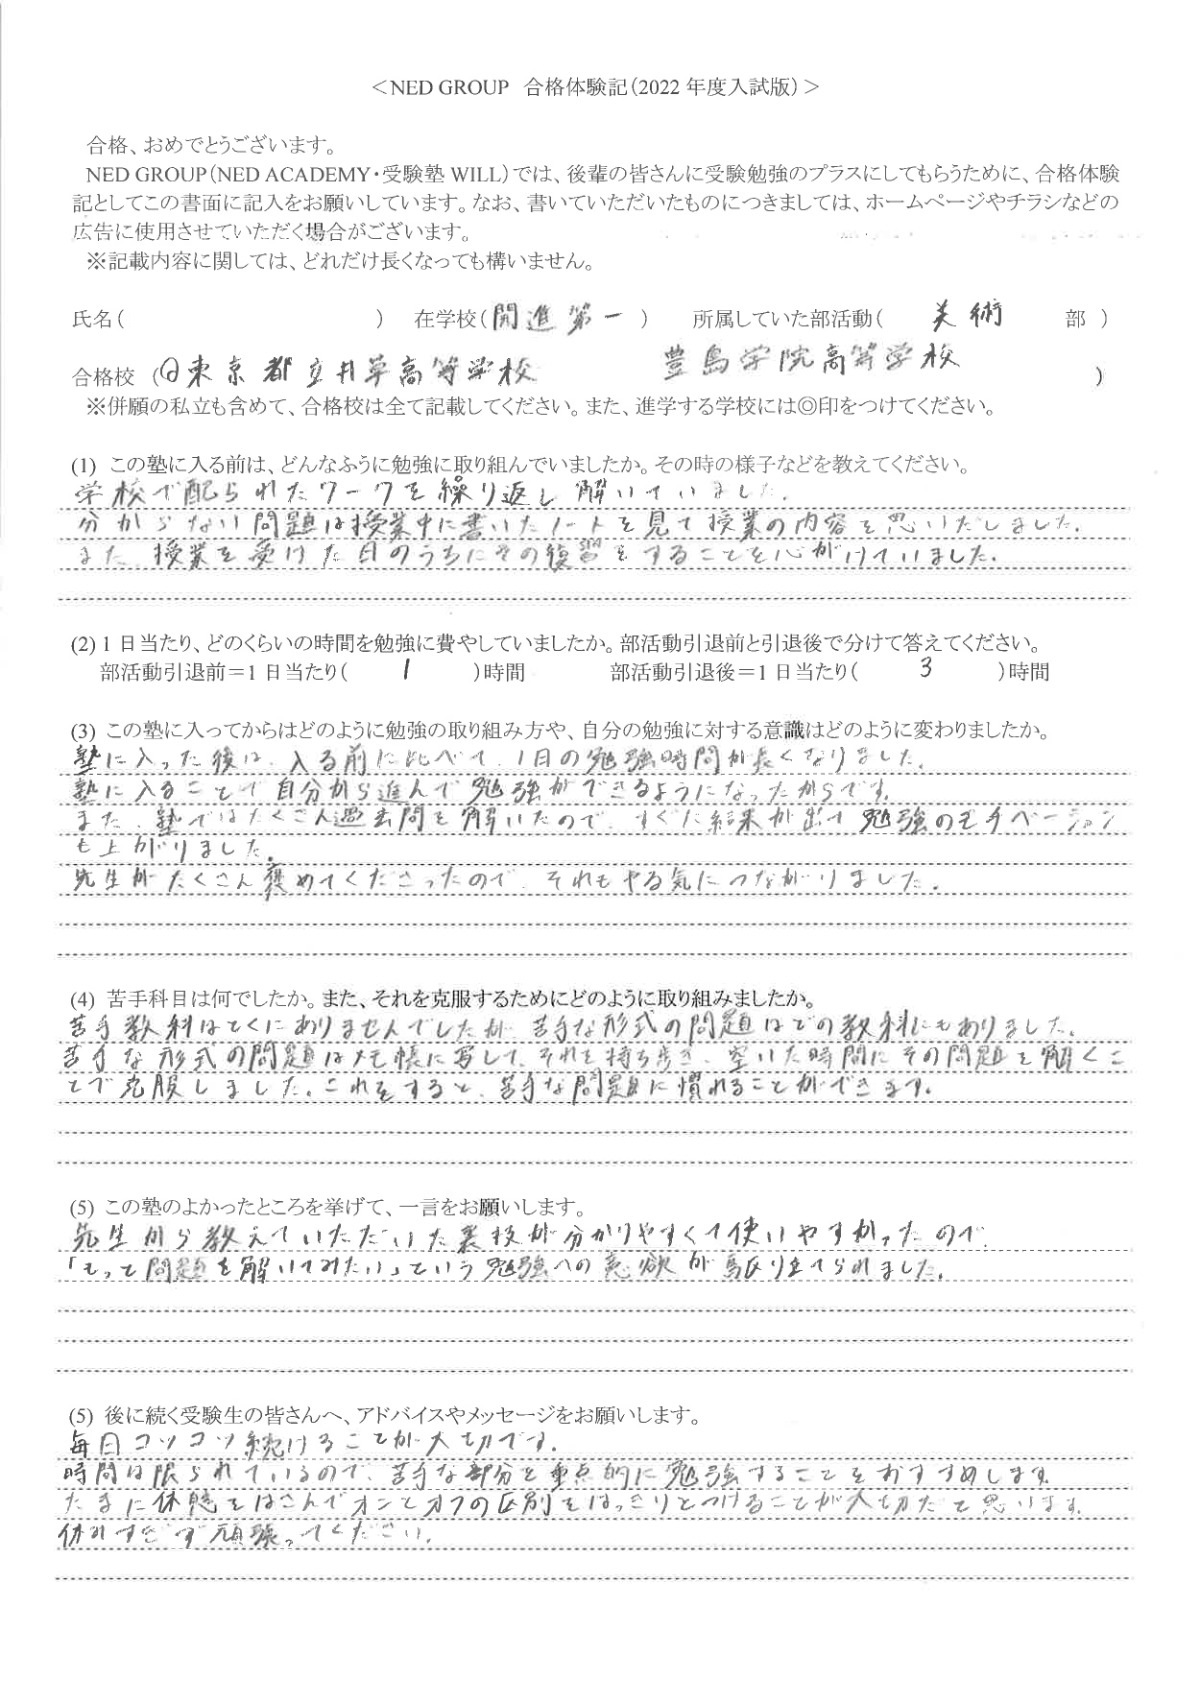 ＜NED GROUP 合格体験記（2022 年度入試版）＞
合格、おめでとうございます。
NED GROUP（NED ACADEMY・受験塾 WILL）では、後輩の皆さんに受験勉強のプラスにしてもらうために、合格体験
記としてこの書面に記入をお願いしています。なお、書いていただいたものにつきましては、ホームページやチラシなどの
広告に使用させていただく場合がございます。
※記載内容に関しては、どれだけ長くなっても構いません。
氏名（ ） 在学校（ 開進第一 ） 所属していた部活動（ 美術 部 ）
合格校 （◎東京都立井草高等学校 豊島学院高等学校 ）
※併願の私立も含めて、合格校は全て記載してください。また、進学する学校には◎印をつけてください。
(1) この塾に入る前は、どんなふうに勉強に取り組んでいましたか。その時の様子などを教えてください。
学校で配られたワークを繰り返し解いていました。
分からない問題は授業中に書いたノートを見て授業の内容を思いだしました。
また、授業を受けた日のうちにその復習をすることを心がけていました。
(2) 1 日当たり、どのくらいの時間を勉強に費やしていましたか。部活動引退前と引退後で分けて答えてください。
部活動引退前＝1 日当たり（ 1 ）時間 部活動引退後＝1 日当たり（ 3 ）時間
(3) この塾に入ってからはどのように勉強の取り組み方や、自分の勉強に対する意識はどのように変わりましたか。
塾に入った後は、入る前に比べて、1日の勉強時間が長くなりました。
塾に入ることで自分から進んで勉強ができるようになったからです。
また、塾ではたくさん過去問を解いたので、すぐに結果が出て勉強のモチベーション
も上がりました。
先生がたくさん褒めてくださったので、それもやる気につながりました。
(4) 苦手科目は何でしたか。また、それを克服するためにどのように取り組みましたか。
苦手教科はとくにありませんでしたが、苦手な形式の問題はどの教科にもありました。
苦手な形式の問題はメモ帳に写して、それを持ち歩き、空いた時間にその問題を解くこ
とで克服しました。これをすると、苦手な問題に慣れることができます。
(5) この塾のよかったところを挙げて、一言をお願いします。
先生から教えていただいた裏技が分かりやすくて使いやすかったので、
「もっと問題を解いてみたい」という勉強への意欲が駆り立てられました。
(5) 後に続く受験生の皆さんへ、アドバイスやメッセージをお願いします。
毎日コツコツ続けることが大切です。
時間は限られているので、苦手な部分を重点的に勉強することをおすすめします。
たまに休憩をはさんでオンとオフの区別をはっきりとつけることが大切だと思います。
休みすぎず頑張ってください。